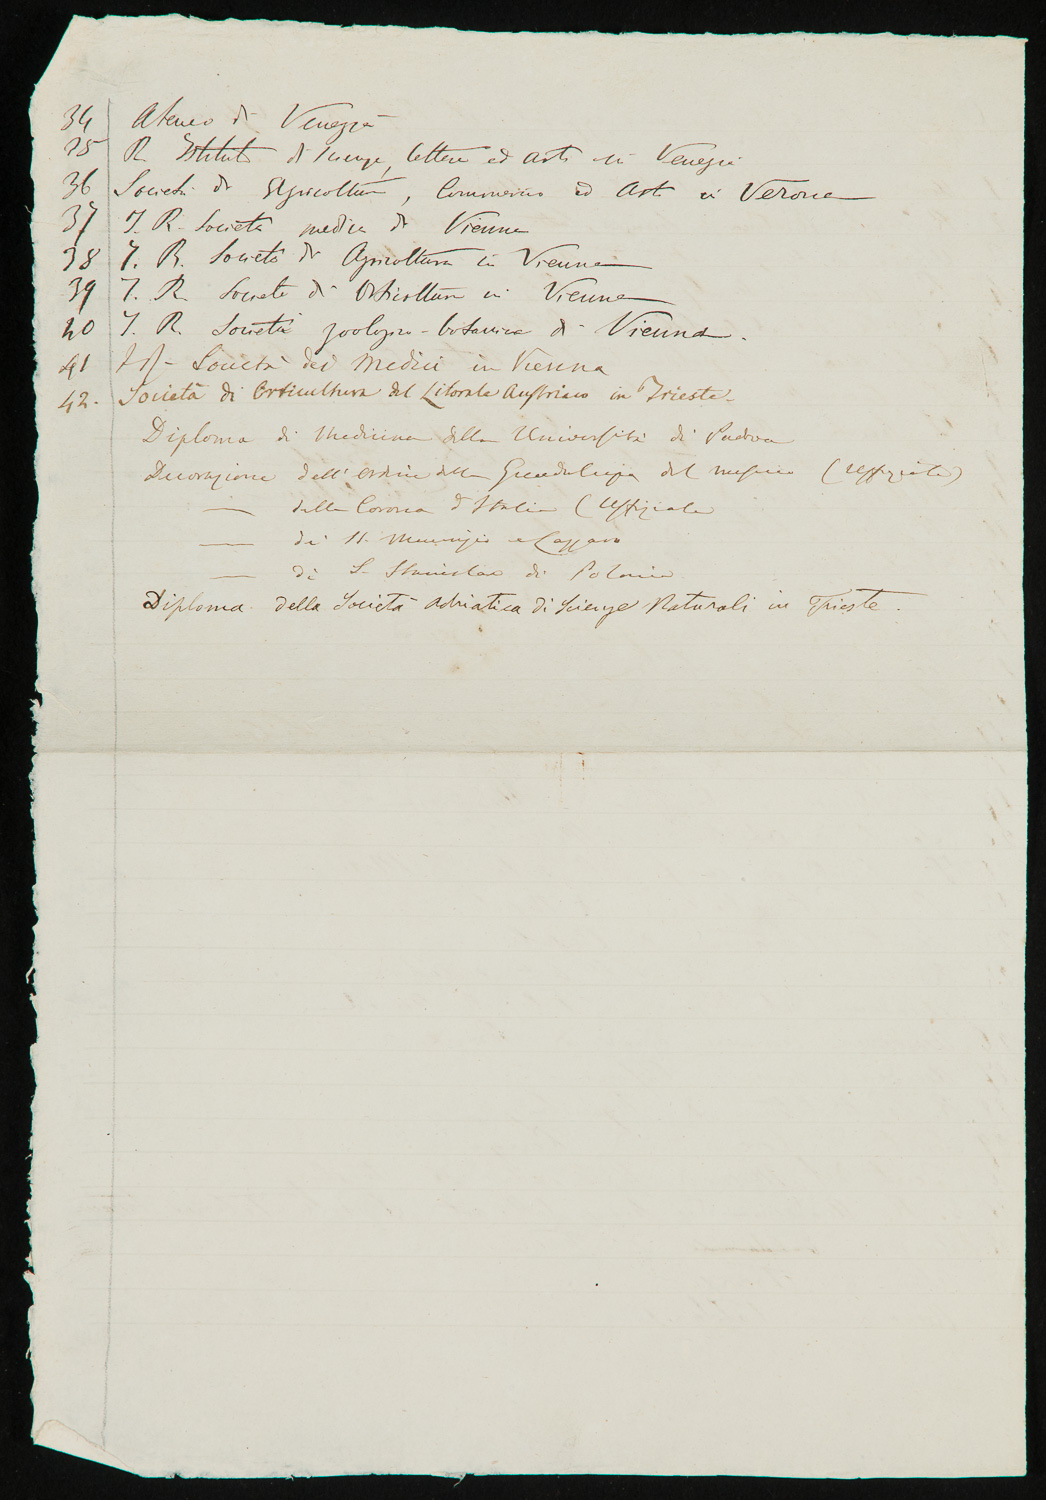 34 Ateneo di Venezia
35 R. Istituto di Scienze, lettere ed arti in Venezia
36 Società di Agricoltura, Commercio ed Arti in Verona
37 I. R. Società medica di Vienna
38 I. R. Società di Agricoltura in Vienna
39 I. R. Società di Orticoltura in Vienna
40 I. R. Società zoologico-botanica di Vienna.
41 Società dei Medici in Vienna
42. Società di Orticultura del Litorale Austriaco in Trieste.
Diploma di Medicina della Università di Padova
Decorazione dell'ordine della Guadalupa del Messico (Uffiziale)
— della Corona d'Italia (Uffiziale
— di S. Maurizio e Lazzaro
— di S. Stanislao di Polonia
Diploma della Società Adriatica di Scienze Naturali in Trieste.